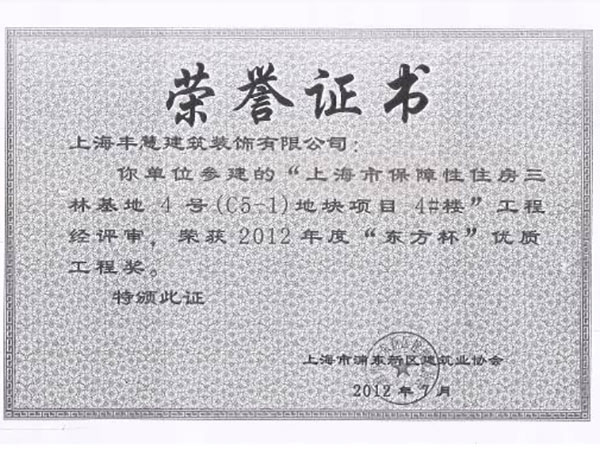 荣誉证书
上海丰慧建筑装饰有限公司：
你单位参建的“上海市保障性住房三
林基地 4 号(C5-1)地块项目 4#楼”工程
经评审，荣获2012年度“东方杯”优质
工程奖。
特颁此证
上海市浦东新区建筑业协会
2012 年 7 月